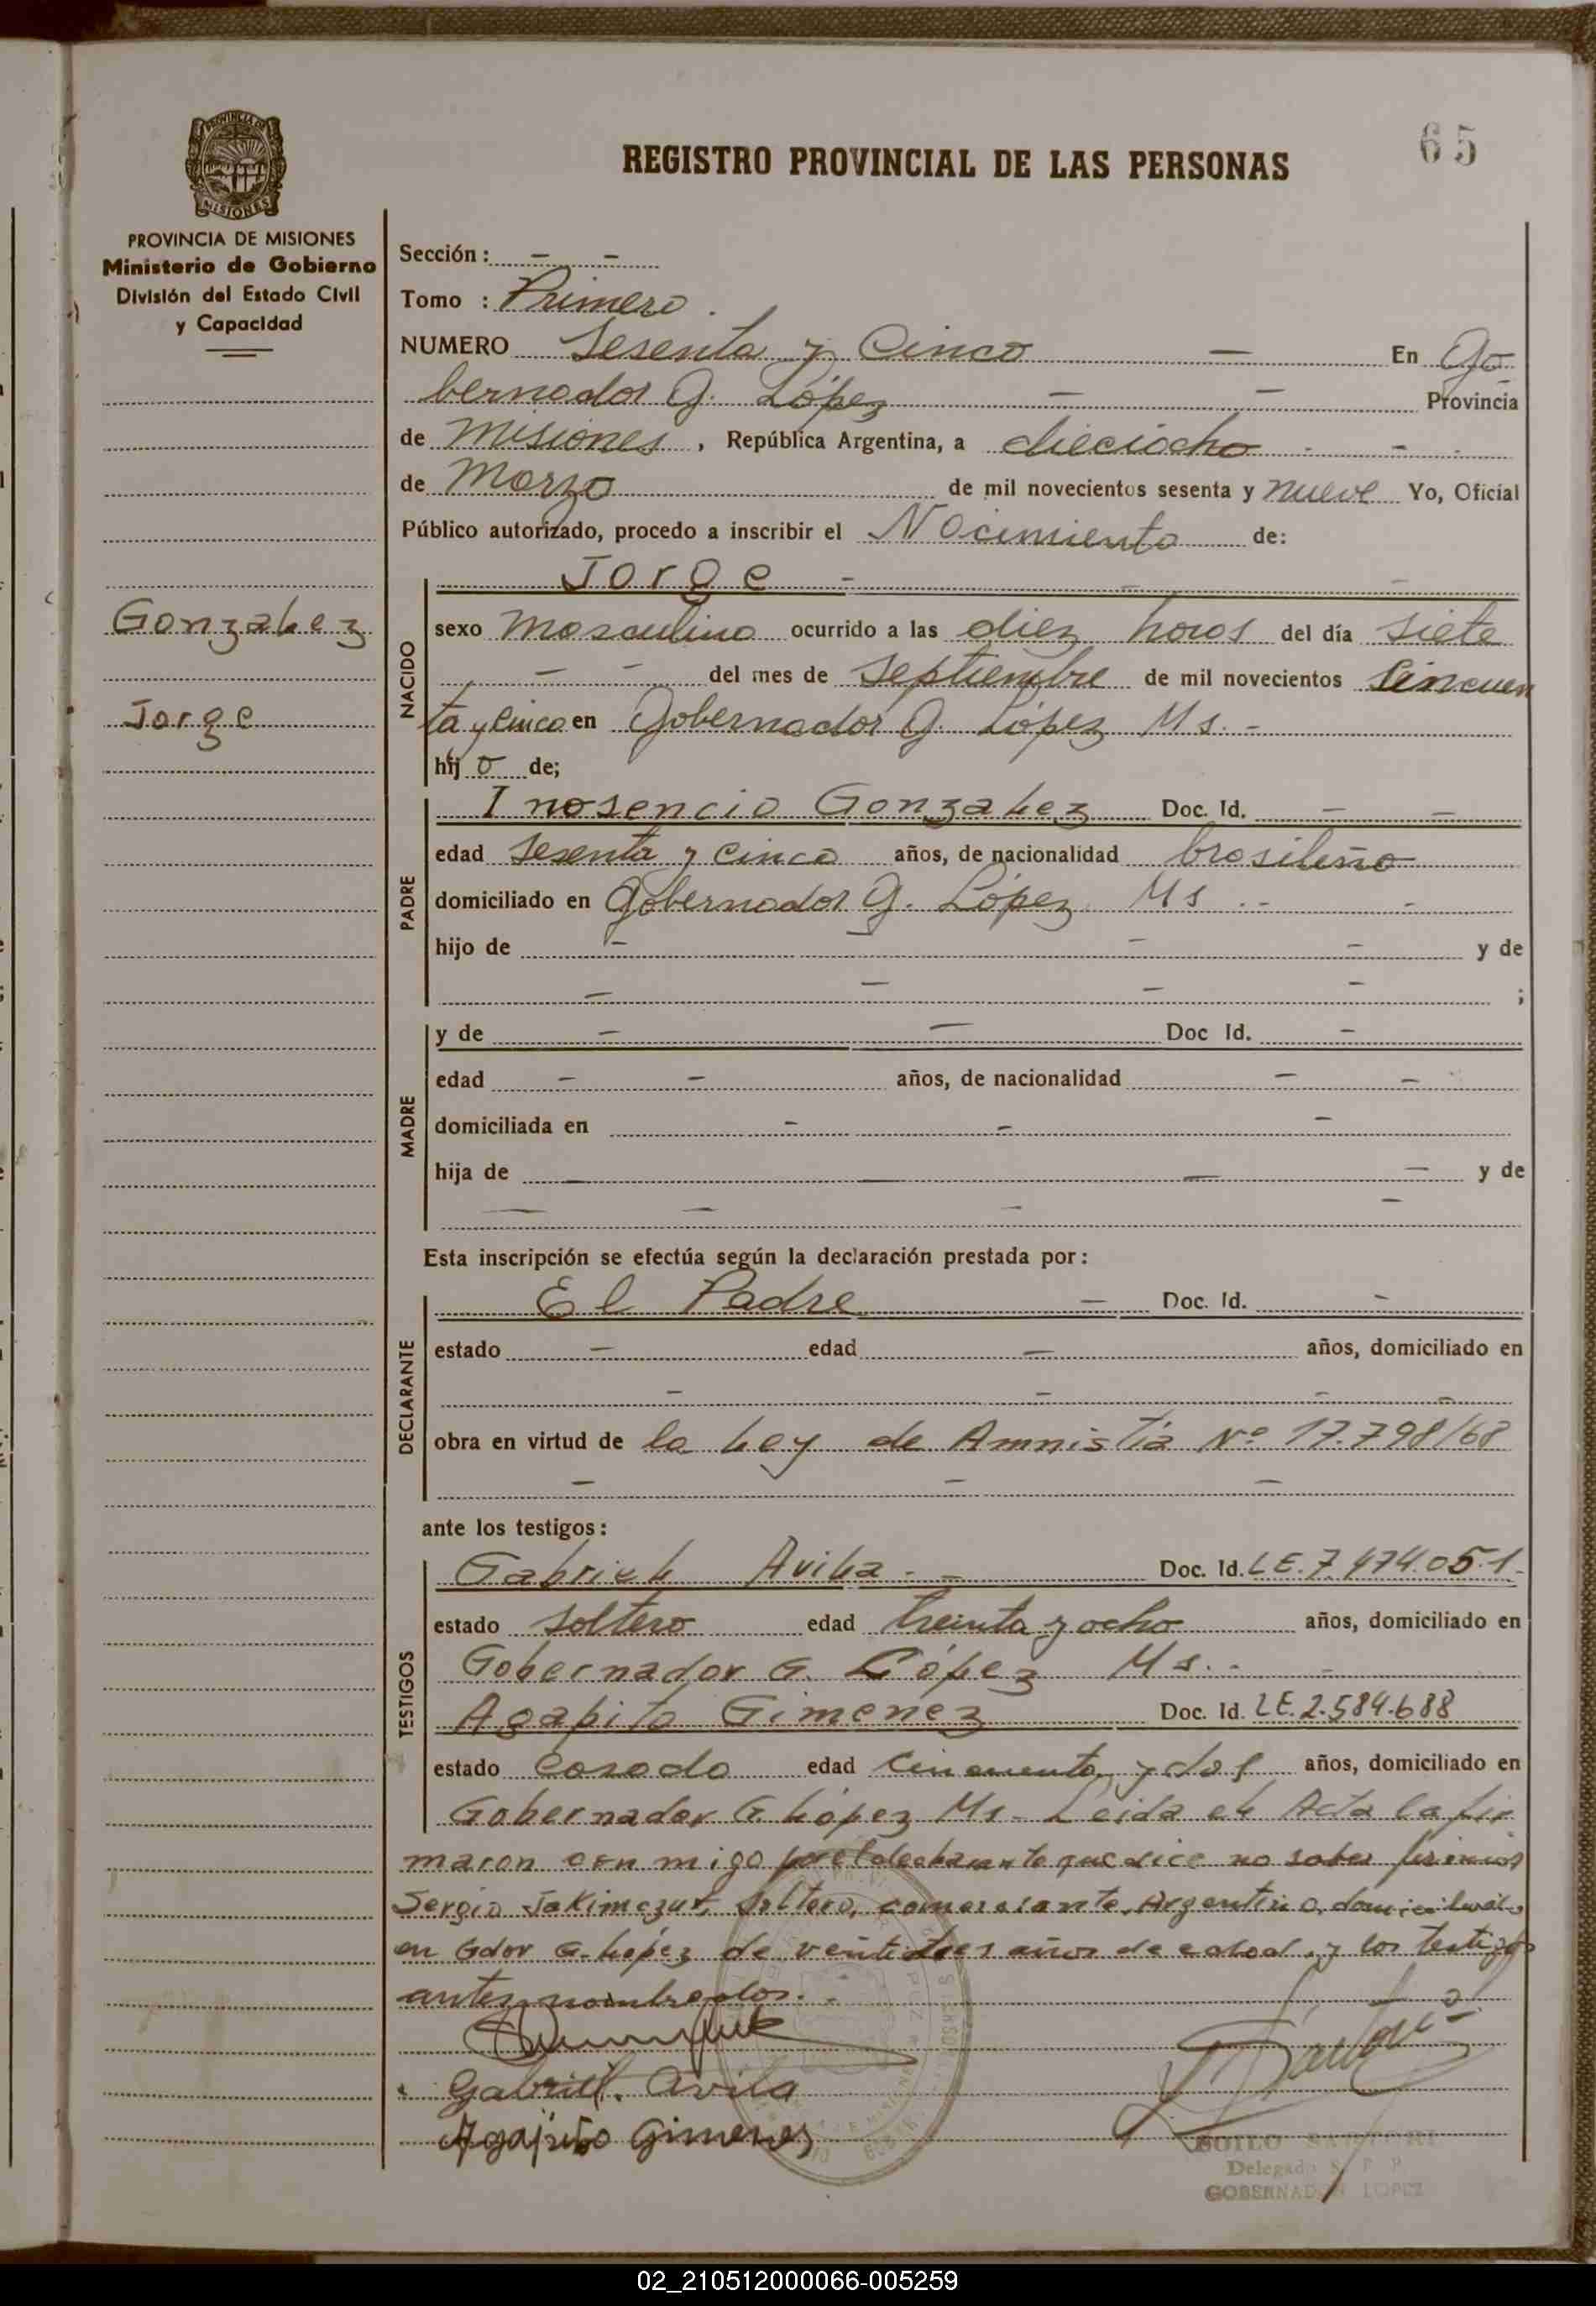 65
REGISTRO PROVINCIAL DE LAS PERSONAS
PROVINCIA DE MISIONES
MISIONES
PROVINCIA DE MISIONES
Ministerio de Gobierno
División del Estado Civil
y Capacidad
Gonzalez
Jorge
Sección: - -
Tomo : Primero.
NUMERO Sesenta y Cinco - En Go
bernador G. López - - Provincia
de Misiones, República Argentina, a dieciocho - - -
de Marzo de mil novecientos sesenta y nueve Yo, Oficial
Público autorizado, procedo a inscribir el Nacimiento de:
NACIDO
Jorge - - -
sexo Masculino ocurrido a las diez horas del día siete
- - del mes de Septiembre de mil novecientos Cincuen
ta y Cinco en Gobernador G. López Ms. -
hijo de;
PADRE
Inosencio Gonzalez Doc. Id. - -
edad Sesenta y Cinco años, de nacionalidad brasileño
domiciliado en Gobernador G. López Ms. - -
hijo de - - - - y de
- - - - ;
MADRE
y de - - Doc Id. -
edad - - años, de nacionalidad - -
domiciliada en - - -
hija de - - - - y de
- - - -
Esta inscripción se efectúa según la declaración prestada por:
DECLARANTE
El Padre - Doc. Id. -
estado - edad - años, domiciliado en
- - - -
obra en virtud de la Ley de Amnistía Nº 17.798/68
- - -
ante los testigos:
TESTIGOS
Gabriel Avila. - Doc. Id. LE. 7.474.051-
estado Soltero edad treinta y ocho años, domiciliado en
Gobernador G. López Ms. - -
Agapito Gimenez Doc. Id. LE. 2.584.688
estado Casado edad Cincuenta y dos años, domiciliado en
Gobernador G. López Ms- Leida el Acta la fir
maron con migo por el declarante que dice no saber firmar
Sergio Jakimczuk, Soltero, comersiante, Argentino, domiciliado
en Gdor G. López de veintitres años de edad, y los testigos
antes nombrados. -
Gabriel. Avila
Agapito Gimenez
SOILO SARTORI
Delegado
GOBERNADOR LOPEZ
02_210512000066-005259